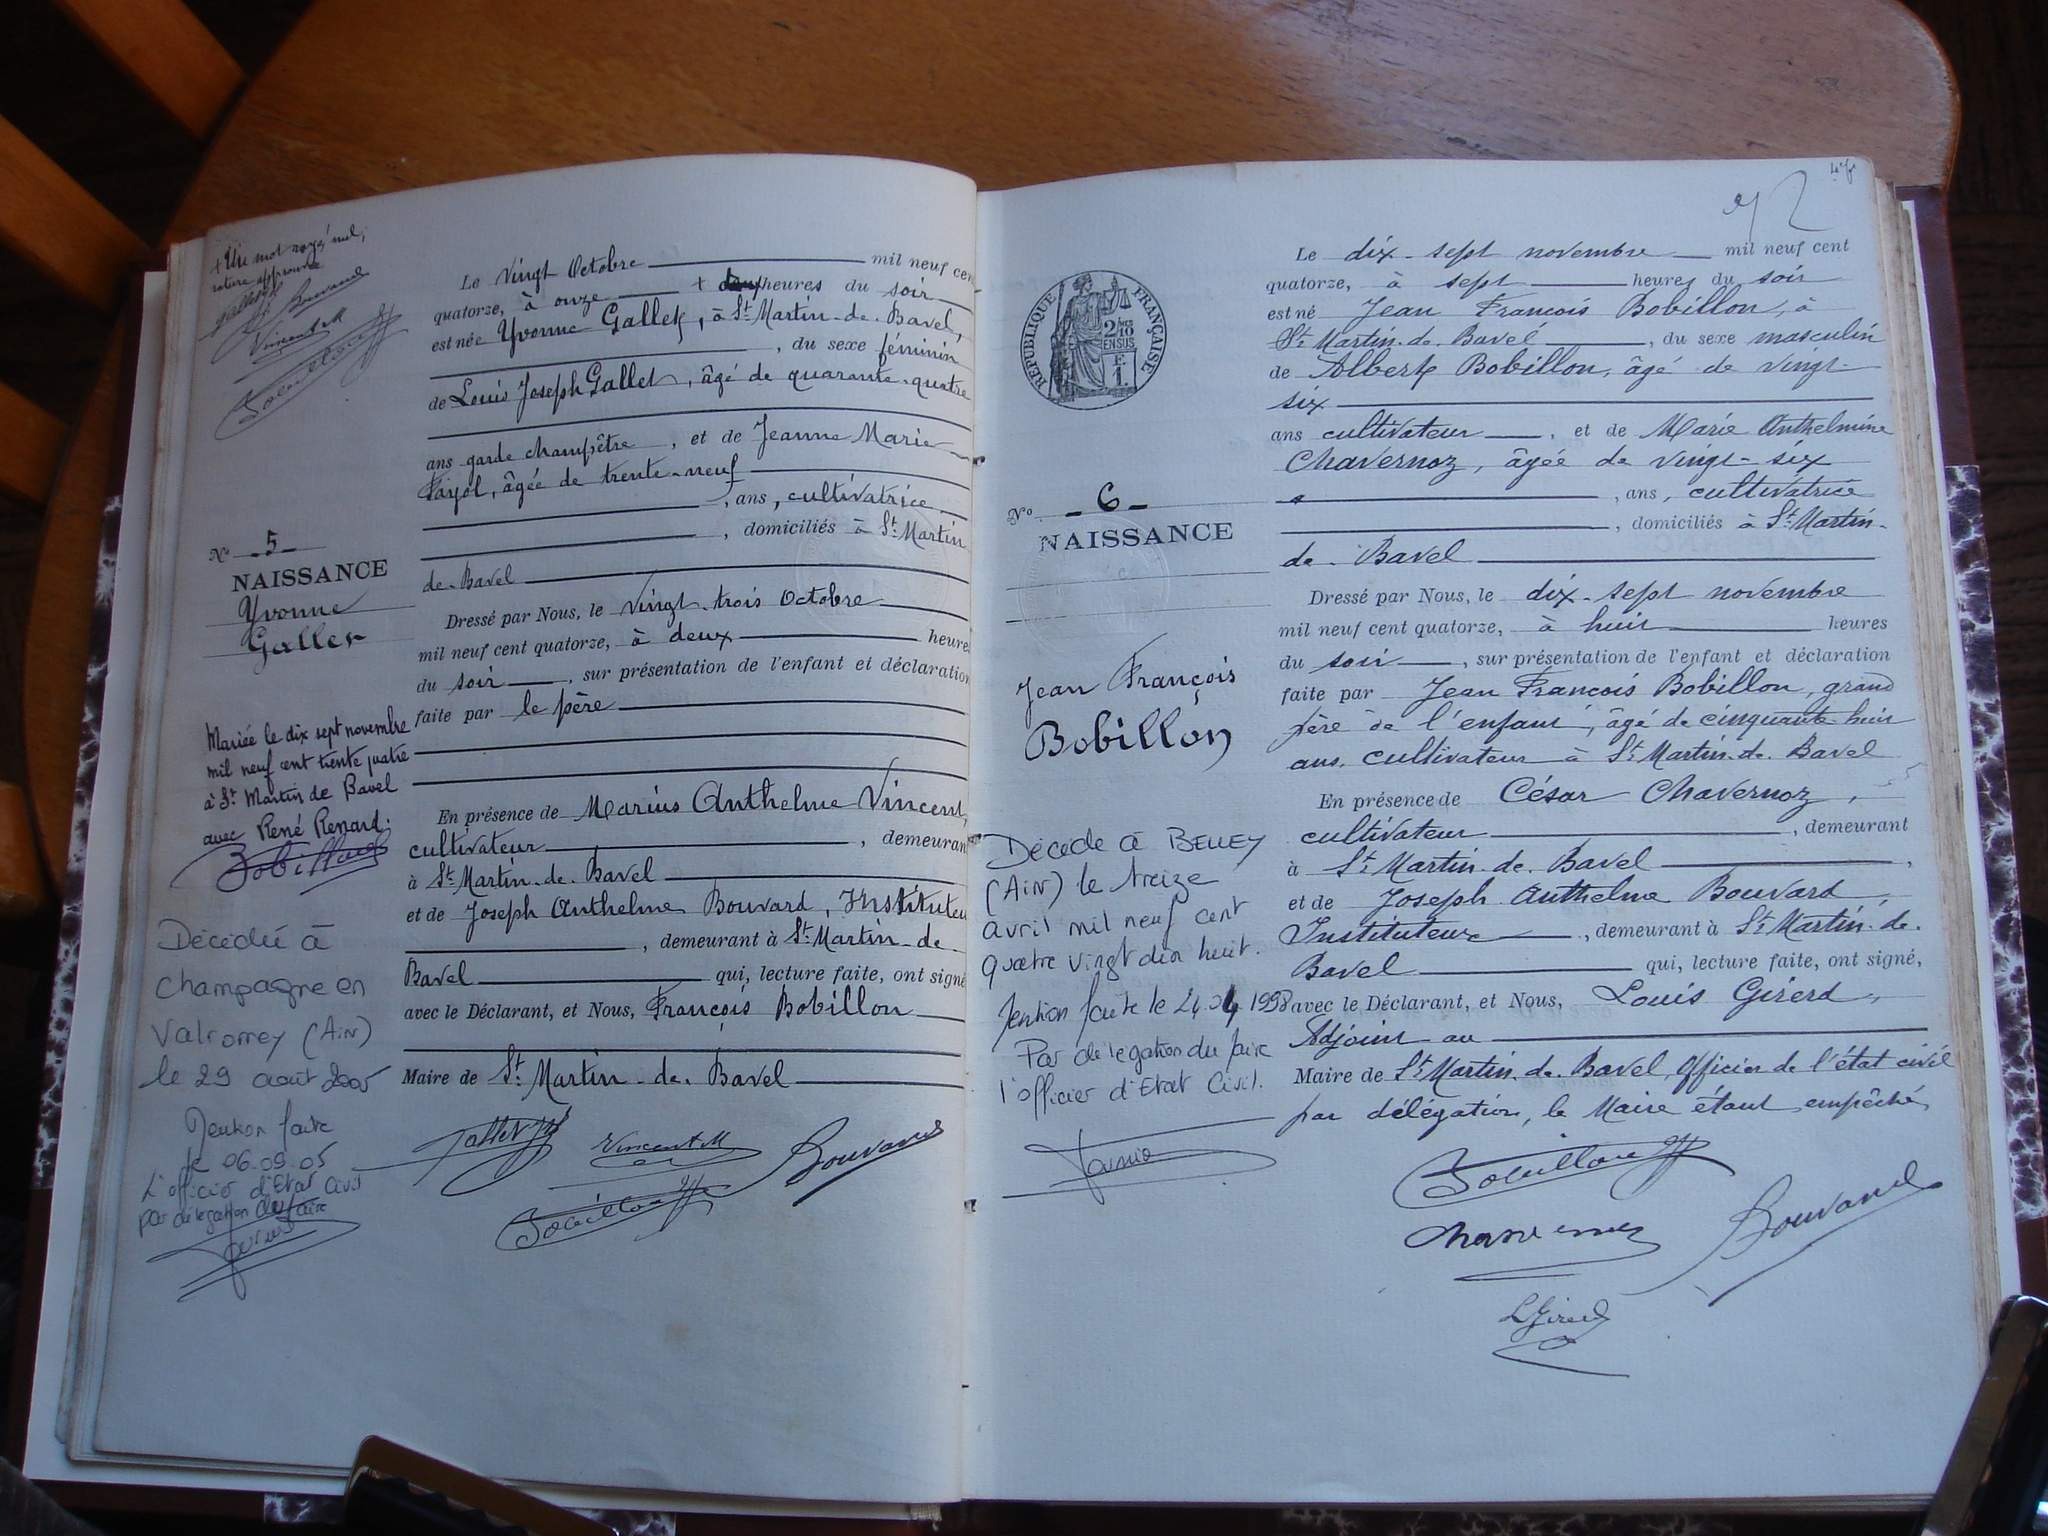 + Un mot rayé nul,
rature approuvée
Gallet
Bouvard
Vincent M
Bobillon
Le vingt Octobre mil neuf cen
quatorze, à onze + heures du soir
est née Yvonne Gallet, à St. Martin-de-Bavel,
, du sexe féminin
de Louis Joseph Gallet, âgé de quarante-quatre
ans garde champêtre, et de Jeanne Marie
Fayol, âgée de trente-neuf
, ans, cultivatrice
, domiciliés à St. Martin
de-Bavel
No -5-
NAISSANCE
Yvonne
Gallet
Dressé par Nous, le vingt-trois Octobre
mil neuf cent quatorze, à deux heures
du soir, sur présentation de l'enfant et déclaration
faite par le père
Mariée le dix sept novembre
mil neuf cent trente quatre
à St Martin de Bavel
avec René Renard.
Bobillon
En présence de Marius Anthelme Vincent,
cultivateur, demeurant
à St. Martin-de-Bavel
et de Joseph Anthelme Bouvard, Instituteu
, demeurant à St. Martin-de-
Bavel qui, lecture faite, ont signé
avec le Déclarant, et Nous, François Bobillon
Maire de St. Martin-de-Bavel
Décédée à
Champagne en
Valromey (Ain)
le 29 août 2005
Mention faite
le 06.09.05
L'officier d'Etat Civil
par délégation du Maire
Gallet
Vincent M
Bouvard
Bobillon
4e f
RÉPUBLIQUE FRANÇAISE
2/10
EN SUS
F
1.
Le dix-sept novembre mil neuf cent
quatorze, à sept heures du soir
est né Jean François Bobillon, à
St. Martin-de-Bavel, du sexe masculin
de Albert Bobillon, âgé de vingt-
six
ans cultivateur, et de Marie Anthelmine
Chavernoz, âgée de vingt-six
, ans, cultivatrice
, domiciliés à St. Martin-
de-Bavel
No -6-
NAISSANCE
Jean François
Bobillon
Dressé par Nous, le dix-sept novembre
mil neuf cent quatorze, à huit heures
du soir, sur présentation de l'enfant et déclaration
faite par Jean François Bobillon, grand
père de l'enfant, âgé de cinquante huit
ans, cultivateur à St. Martin-de-Bavel
En présence de César Chavernoz,
cultivateur, demeurant
à St. Martin-de-Bavel,
et de Joseph Anthelme Bouvard
Instituteur, demeurant à St. Martin-de-
Bavel qui, lecture faite, ont signé,
avec le Déclarant, et Nous, Louis Girerd,
Adjoint au
Maire de St. Martin-de-Bavel, Officier de l'état civil
par délégation, le Maire étant empêché
Décédé à BELLEY
(AIN) le treize
avril mil neuf cent
quatre vingt dix huit.
Mention faite le 24.04.1998
Par délégation du Maire
l'officier d'Etat Civil.
Bobillon
Chavernoz
Bouvard
L Girerd